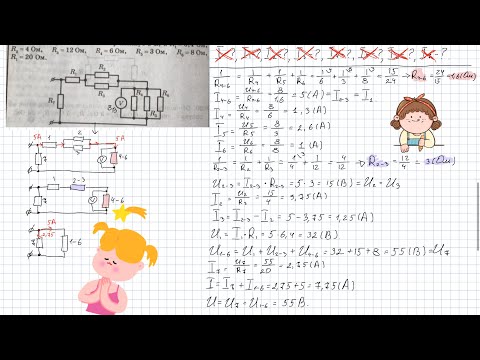 R₂ = 4 Ом, R₃ = 12 Ом, R₄ = 6 Ом, R₅ = 3 Ом, R₆ = 8 Ом,
R₇ = 20 Ом.
R₁
R₂
R₃
R₇
V
R₄
R₅
R₆
8 В
5A 1 2 5A
3
7 V 4-6
1 2-3
7 V 4-6
5A
7 2,75 1-6
1/R₄₋₆ = 1/R₄ + 1/R₅ + 1/R₆ = 1/6 + 1/3 + 1/8 = 15/24 ⇒ R₄₋₆ = 24/15 = 1,6 (Ом)
I₄₋₆ = U₄₋₆/R₄₋₆ = 8/1,6 = 5 (A) = I₂₋₃ = I₁
I₄ = U₄/R₄ = 8/6 = 1,3 (A)
I₅ = U₅/R₅ = 8/3 = 2,6 (A)
I₆ = U₆/R₆ = 8/8 = 1 (A)
1/R₂₋₃ = 1/R₂ + 1/R₃ = 1/4 + 1/12 = 4/12 ⇒ R₂₋₃ = 12/4 = 3 (Ом)
U₂₋₃ = I₂₋₃ · R₂₋₃ = 5 · 3 = 15 (В) = U₂ = U₃
I₂ = U₂/R₂ = 15/4 = 3,75 (A)
I₃ = I₂₋₃ - I₂ = 5 - 3,75 = 1,25 (A)
U₁ = I₁ · R₁ = 5 · 6,4 = 32 (В)
U₁₋₆ = U₁ + U₂₋₃ + U₄₋₆ = 32 + 15 + 8 = 55 (В) = U₇
I₇ = U₇/R₇ = 55/20 = 2,75 (A)
I = I₇ + I₁₋₆ = 2,75 + 5 = 7,75 (A)
U = U₇ = U₁₋₆ = 55 В.